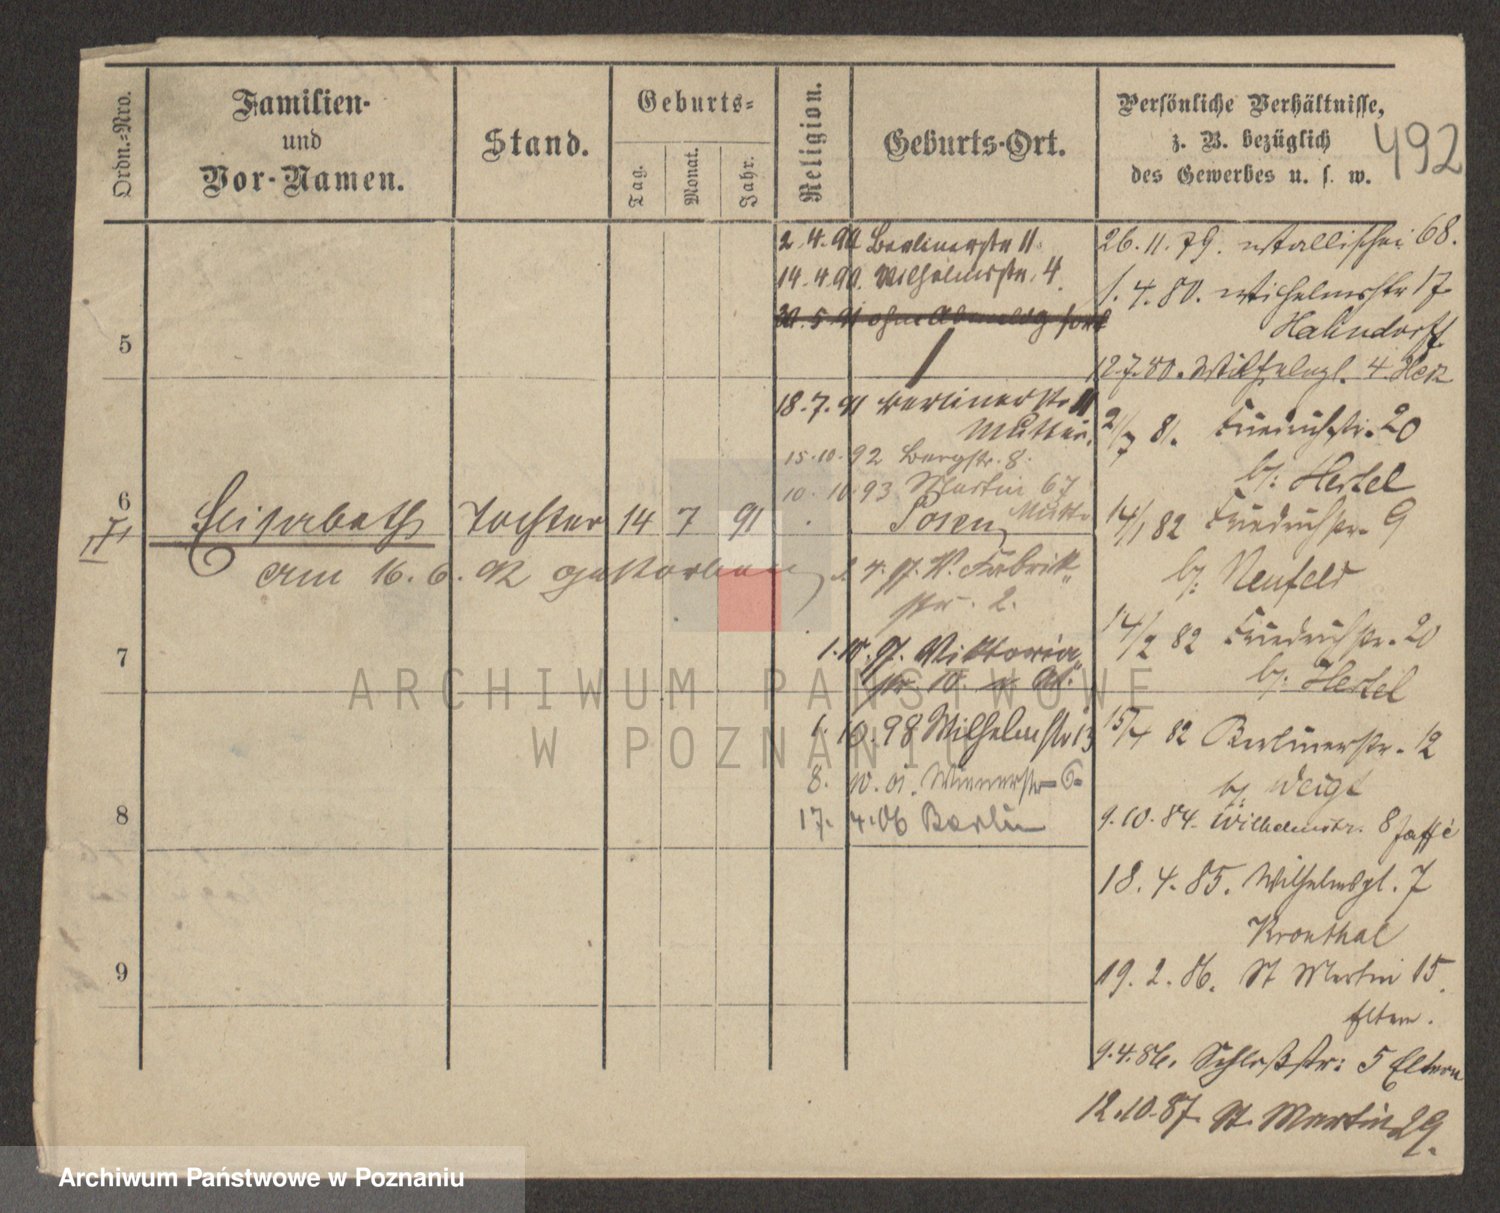 Ordn.-Nro.
Familien-
und
Vor-Namen.
Stand.
Geburts-
Tag.
Monat.
Jahr.
Religion.
Geburts-Ort.
Persönliche Verhältnisse,
z. B. bezüglich
des Gewerbes u. s. w.
492
5
6
7
8
9
Elisabeth Tochter 14 7 91 Posen
am 16. 6. 92 gestorben
2.4.90 Berlinerstr 11.
14.4.90. Wilhelmstr. 4.
30.5.91 ohne Abmeldg fort
18.7.91 Berlinerstr 11
Mutter.
15.10.92 Bergstr. 8.
10.10.93 Martin 67
Mutter
Fabrik
str. 2.
1.10.97. Viktoria
str 10.
1.10.98 Wilhelmstr 13
8. 10. 01. Wienerstr 6
17. 4.06 Berlin
26.11.79. Wallischei 68.
1.4.80. Wilhelmsstr 17
Hahndorff
12.7.80. Wilhelmpl. 4. Herz
2/7 81. Friedrichstr. 20
b/. Hertel
14/1 82 Friedrichstr. 9
b/. Neufeld
14/2 82 Friedrichstr. 20
b/. Hertel
15/4 82 Berlinerstr. 12
b/. Weigt
9.10.84. Wilhelmstr. 8 Jaffé
18.4.85. Wilhelmspl. 7
Kronthal
19.2.86. St Martin 15.
Eltern.
9.4.86. Schloßstr: 5 Eltern
12.10.87. St. Martin 29.
ARCHIWUM PAŃSTWOWE
W POZNANIU
Archiwum Państwowe w Poznaniu